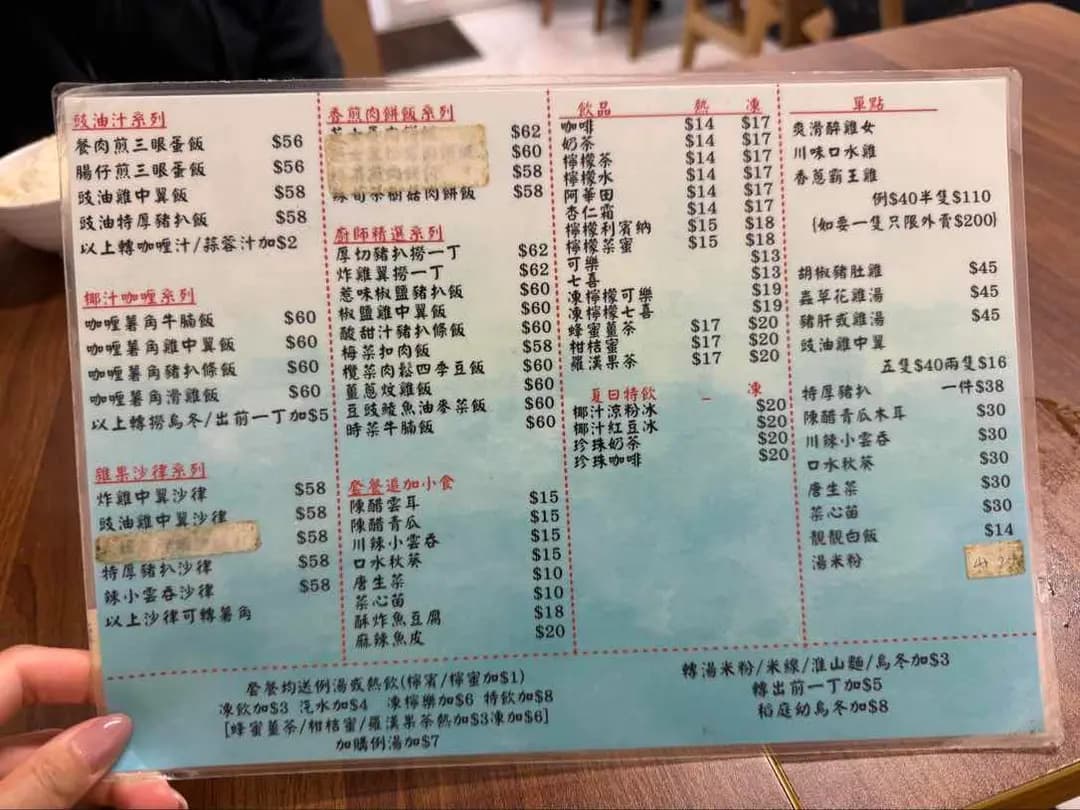 豉油汁系列
餐肉煎三眼蛋飯 $56
腸仔煎三眼蛋飯 $56
豉油雞中翼飯 $58
豉油特厚豬扒飯 $58
以上轉咖喱汁/蒜蓉汁加$2
椰汁咖喱系列
咖喱薯角牛腩飯 $60
咖喱薯角雞中翼飯 $60
咖喱薯角豬扒條飯 $60
咖喱薯角滑雞飯 $60
以上轉撈烏冬/出前一丁加$5
雜果沙律系列
炸雞中翼沙律 $58
豉油雞中翼沙律 $58
$58
特厚豬扒沙律 $58
辣小雲吞沙律 $58
以上沙律可轉薯角
香煎肉餅飯系列
$62
$60
$58
茶樹菇肉餅飯 $58
廚師精選系列
厚切豬扒撈一丁 $62
炸雞翼撈一丁 $62
惹味椒鹽豬扒飯 $60
椒鹽雞中翼飯 $60
酸甜汁豬扒條飯 $60
梅菜扣肉飯 $58
欖菜肉鬆四季豆飯 $60
薑蔥炆雞飯 $60
豆豉鯪魚油麥菜飯 $60
時菜牛腩飯 $60
套餐追加小食
陳醋雲耳 $15
陳醋青瓜 $15
川辣小雲吞 $15
口水秋葵 $15
唐生菜 $10
菜心苗 $10
酥炸魚豆腐 $18
麻辣魚皮 $20
飲品 熱 凍
咖啡 $14 $17
奶茶 $14 $17
檸檬茶 $14 $17
檸檬水 $14 $17
阿華田 $14 $17
杏仁霜 $14 $17
檸檬利賓納 $15 $18
檸檬菜蜜 $15 $18
可樂 $13
七喜 $13
凍檸檬可樂 $19
凍檸檬七喜 $19
蜂蜜薑茶 $17 $20
柑桔蜜 $17 $20
羅漢果茶 $17 $20
夏日特飲 凍
椰汁涼粉冰 $20
椰汁紅豆冰 $20
珍珠奶茶 $20
珍珠咖啡 $20
單點
爽滑醉雞女
川味口水雞
香蔥霸王雞
例$40半隻$110
(如要一隻只限外賣$200)
胡椒豬肚雞 $45
蟲草花雞湯 $45
豬肝或雞湯 $45
豉油雞中翼
五隻$40兩隻$16
特厚豬扒 一件$38
陳醋青瓜木耳 $30
川辣小雲吞 $30
口水秋葵 $30
唐生菜 $30
菜心苗 $30
靚靚白飯 $14
湯米粉
套餐均送例湯或熱飲(檸賓/檸蜜加$1)
凍飲加$3 汽水加$4 凍檸樂加$6 特飲加$8
[蜂蜜薑茶/柑桔蜜/羅漢果茶熱加$3凍加$6]
加購例湯加$7
轉湯米粉/米線/淮山麵/烏冬加$3
轉出前一丁加$5
稻庭幼烏冬加$8